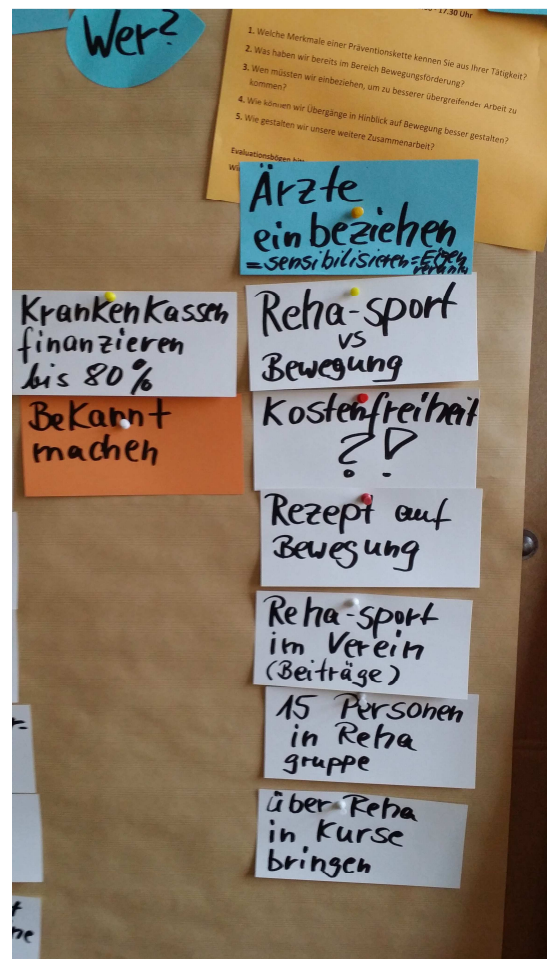 Wer?
17.30 Uhr
1. Welche Merkmale einer Präventionskette kennen Sie aus Ihrer Tätigkeit?
2. Was haben wir bereits im Bereich Bewegungsförderung?
3. Wen müssten wir einbeziehen, um zu besserer übergreifender Arbeit zu
kommen?
4. Wie können wir Übergänge in Hinblick auf Bewegung besser gestalten?
5. Wie gestalten wir unsere weitere Zusammenarbeit?
Evaluationsbögen
Ärzte
einbeziehen
=sensibilisieren=Eigen
Krankenkassen
finanzieren
bis 80%
Bekannt
machen
Reha-sport
vs
Bewegung
Kostenfreiheit
?!
Rezept auf
Bewegung
Reha-sport
im Verein
(Beiträge)
15 Personen
in Reha
gruppe
über Reha
in Kurse
bringen